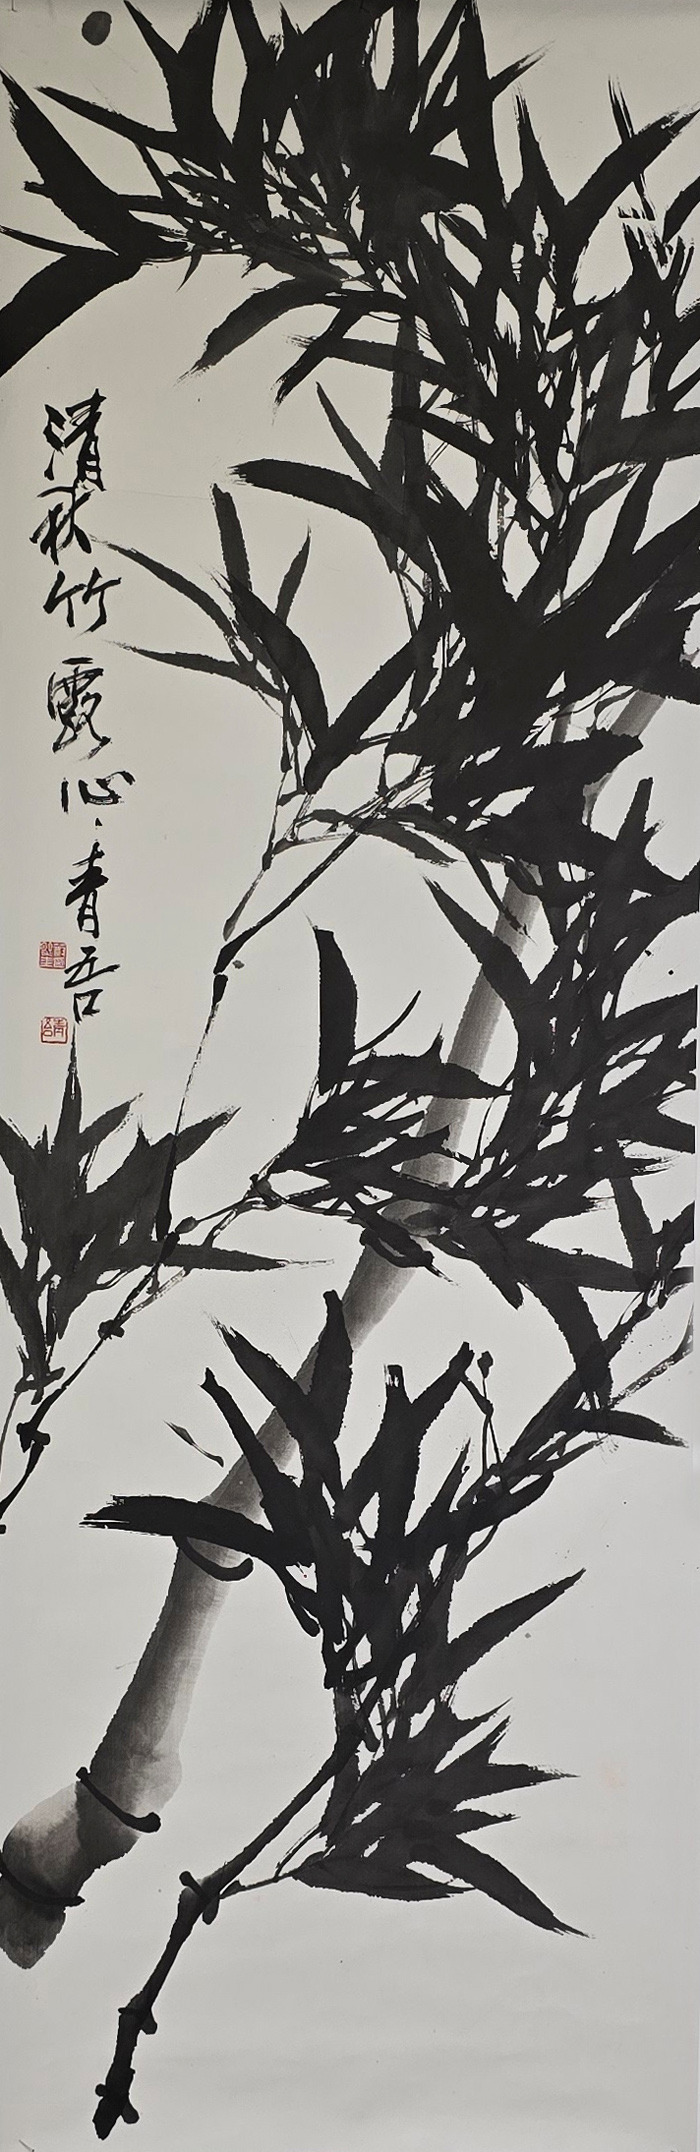 清秋竹露心青吾